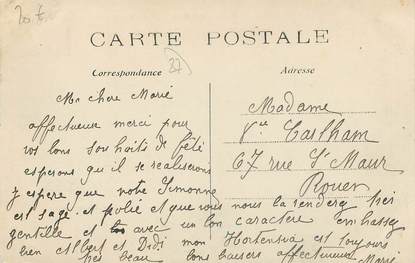 20 €
CARTE POSTALE
Correspondance
27
Adresse
Ma chere Marie
affectueux merci pour
vos bons souhaits de fête
esperons qu'il se realiserons
j espere que notre Simonne
est sage et polie et que vous nous la renderez bien
gentille et avec un bon caractere embrassez
bien Albert et Didi mon Hortensia est toujours
tres beau bons baisers affectueux
Marie
Madame
Vve Castham
67 rue St Maur
Rouen